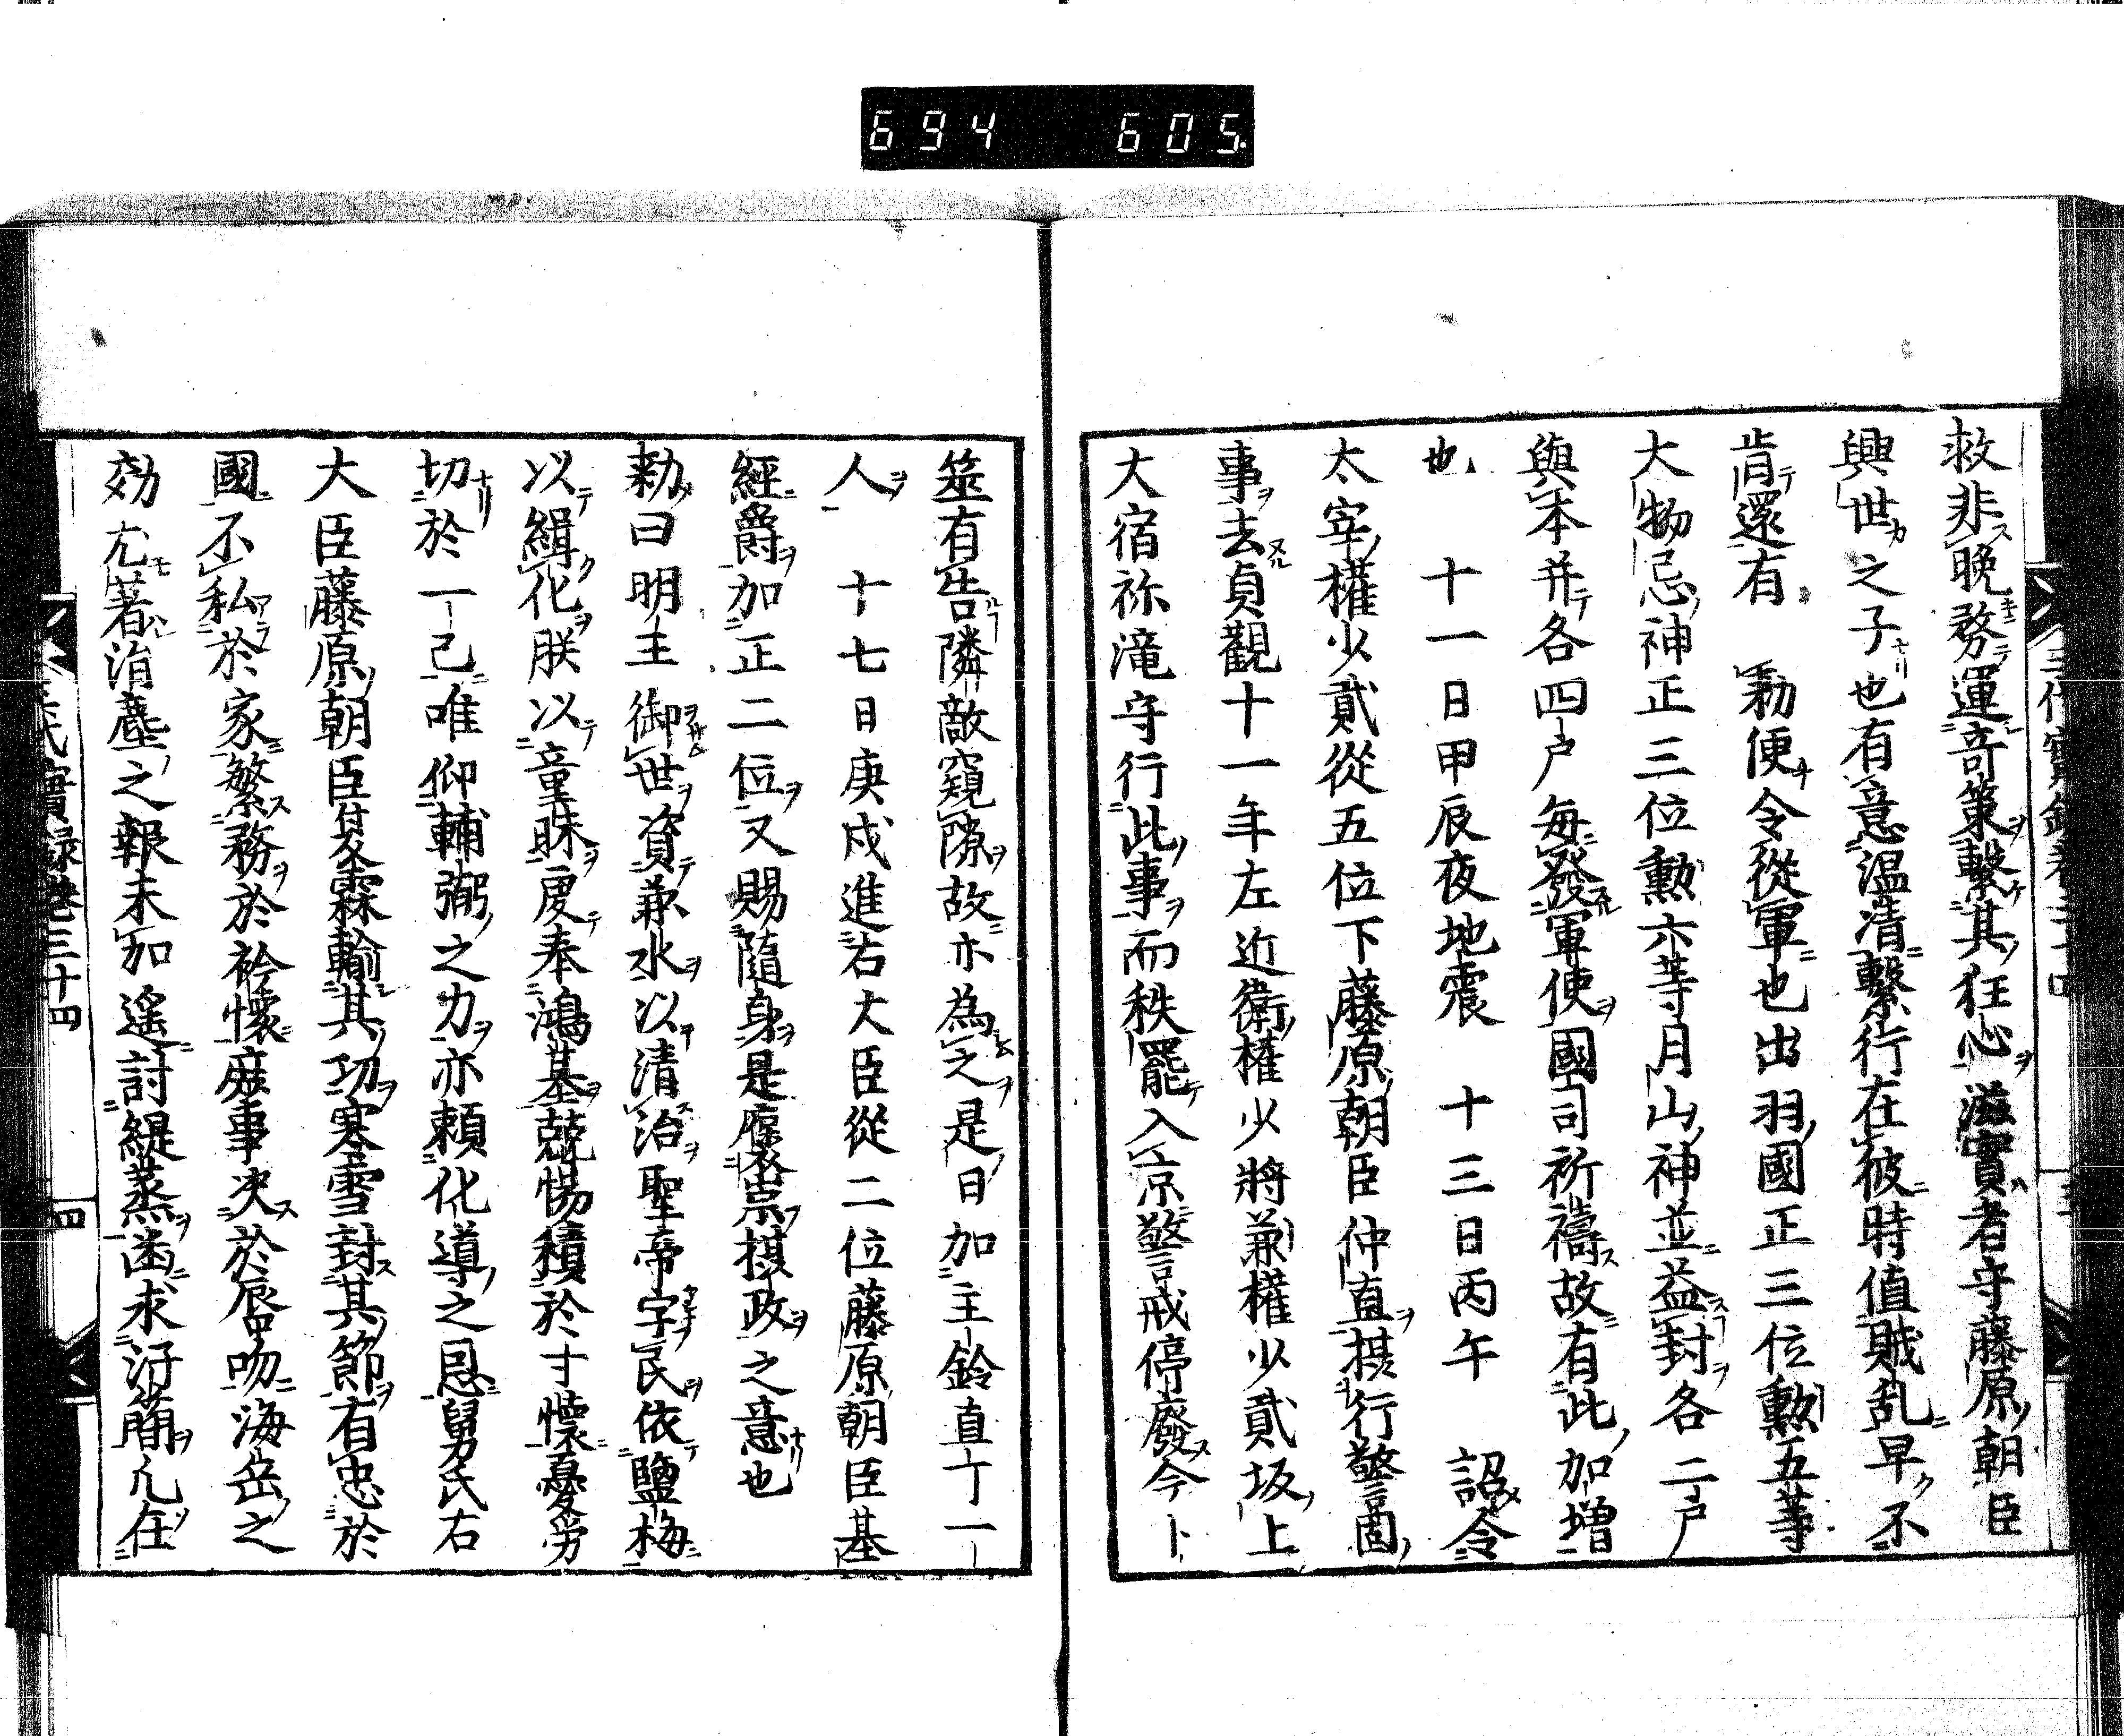 694 605.
救非晩務運奇策繫其狂心滋實者守藤原朝臣
興世之子也有意温清繫行在彼時值賊乱早不
肯還有勅便令從軍也出羽國正三位勲五等
大物忌神正三位勲六等月山神並益封各二戸
與本并各四戸毎發軍使國司祈禱故有此加増
也 十一日甲辰夜地震 十三日丙午 詔令
太宰權少貳從五位下藤原朝臣仲直撿行警固
事去貞觀十一年左近衛權少將兼權少貳坂上
大宿祢滝守行此事而秩罷入京警戒停廢今卜
筮有告隣敵窺隙故亦為之是日加主鈴直丁一
人 十七日庚戌進右大臣從二位藤原朝臣基
經爵加正二位又賜隨身是應褒崇摂政之意也
勅曰明主御世資兼水以清治聖帝字民依鹽梅
以緝化朕以童昧虔奉鴻基兢惕積於寸懷憂労
切於一己唯仰輔弼之力亦頼化導之恩舅氏右
大臣藤原朝臣基霖輸其功寒雪封其節有忠於
國不私於家繁務於衿懷庶事决於唇吻海岳之
効尤著涓塵之報未加遥討緹蒸函求汙簡凡任
三代實録卷三十四 四